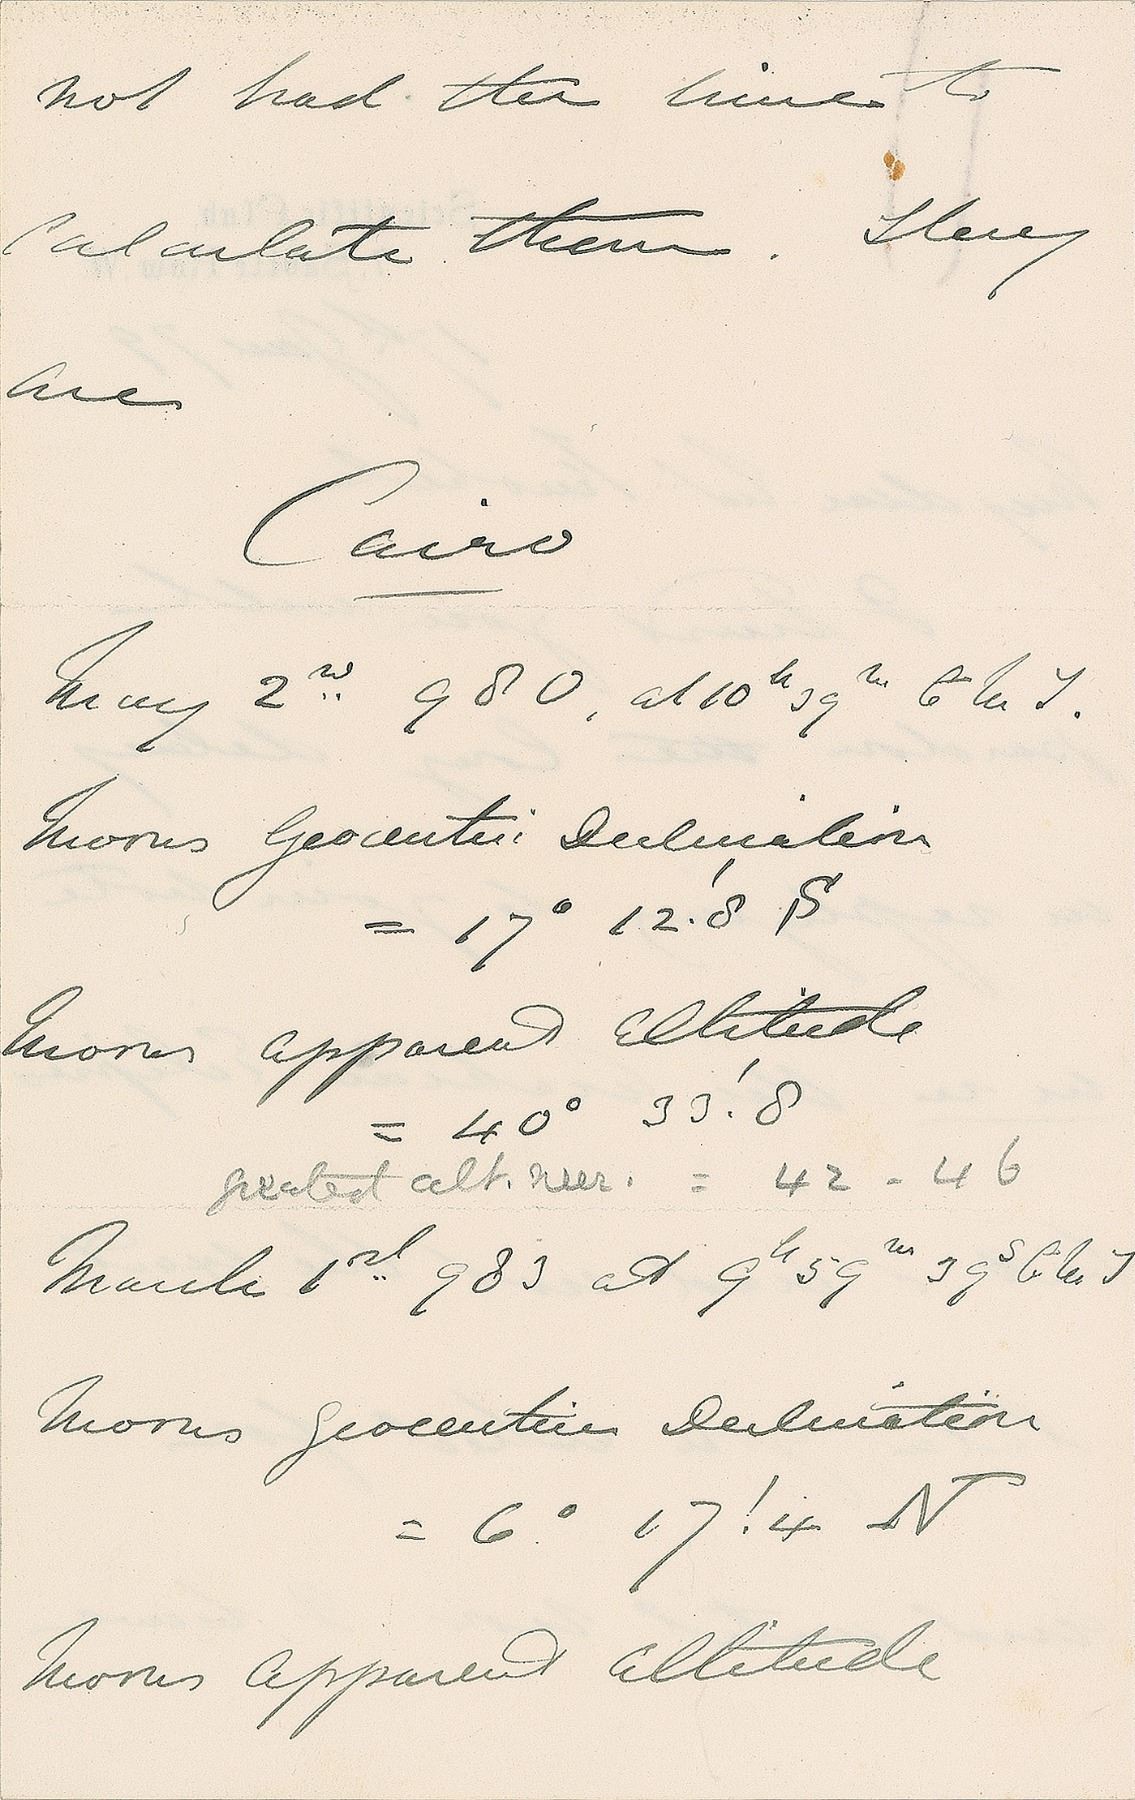 not had the time to
calculate them. They
are
Cairo
May 2nd 980, at 10h 39m G M T.
Moons Geocentric Declination
= 17° 12'.8 S
Moons apparent altitude
= 40° 33'.8
greatest alt. = 42 - 46
March 1st 983 at 9h 59m 39s G M T
Moons Geocentric Declination
= 6° 17'.4 N
Moons apparent altitude